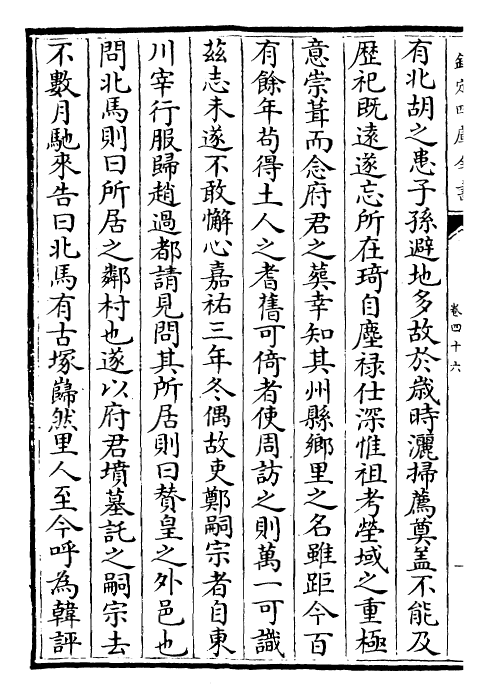 有北胡之患子孫避地多故於歲時灑掃薦奠盖不能及
歴祀既遠遂忘所在琦自塵禄仕深惟祖考塋域之重極
意崇葺而念府君之葬幸知其州縣鄉里之名雖距今百
有餘年茍得土人之耆舊可倚者使周訪之則萬一可識
兹志未遂不敢懈心嘉祐三年冬偶故吏鄭嗣宗者自東
川宰行服歸趙過都請見問其所居則曰賛皇之外邑也
問北馬則曰所居之鄰村也遂以府君墳墓託之嗣宗去
不數月馳來告曰北馬有古塚巋然里人至今呼為韓評
欽定四庫全書
卷四十六